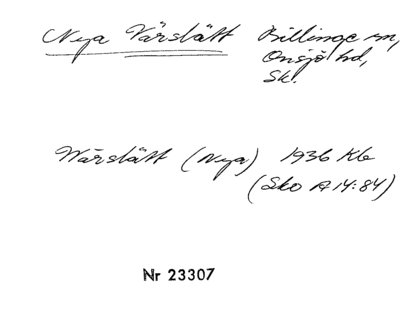 Nya Värslätt Billinge sn,
Onsjö hd,
Sk.
Wärslätt (Nya) 1936 Kb
(Sko A 14:84)
Nr 23307